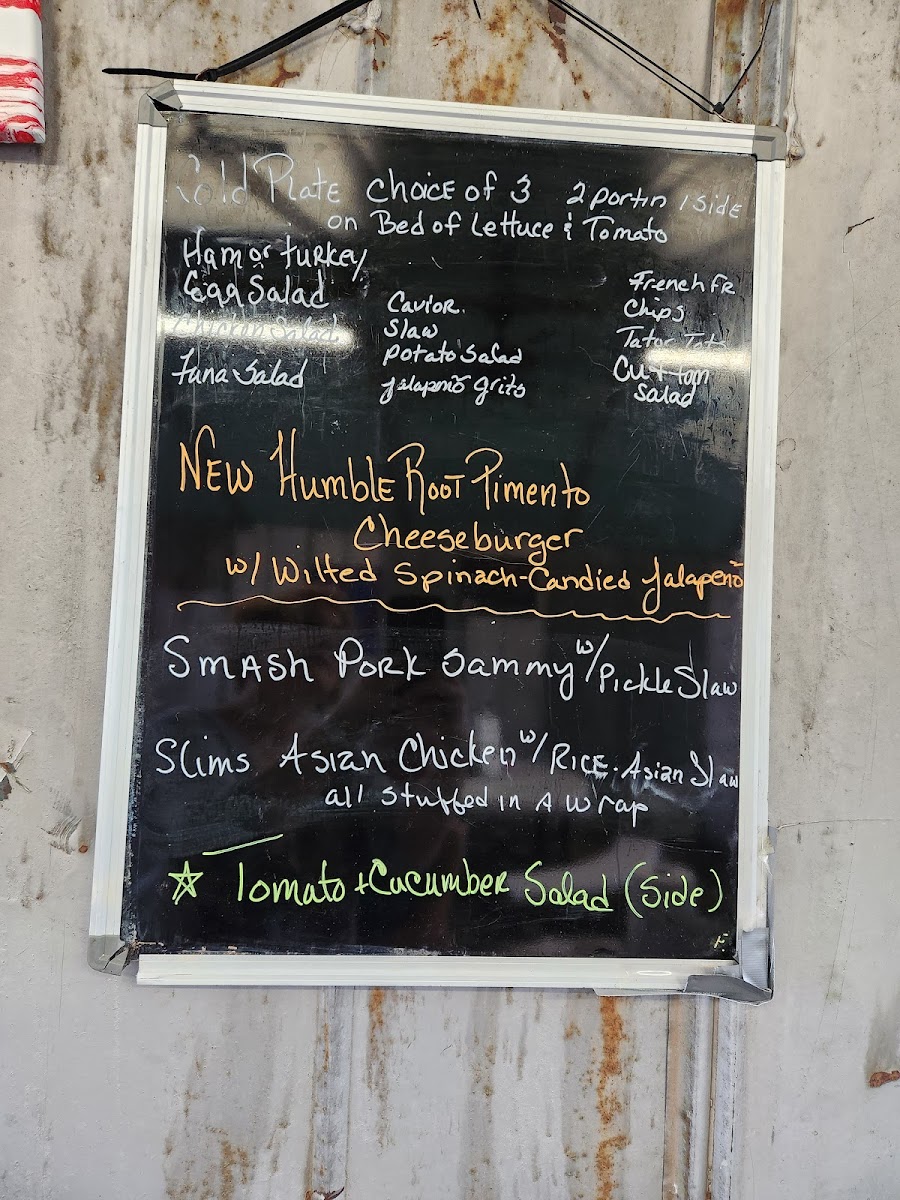 Cold Plate Choice of 3 2 Portin 1 Side
on Bed of Lettuce & Tomato
Ham or turkey
Egg Salad
Chicken Salad
Tuna Salad
Cavior
Slaw
Potato Salad
Jalapeño grits
French Fr
Chips
Tator Tots
Salad
New Humble Root Pimento
Cheeseburger
w/ Wilted Spinach-Candied Jalapeño
Smash Pork Sammy w/ Pickle Slaw
Slims Asian Chicken w/ Rice. Asian Slaw
all Stuffed in A Wrap
☆ Tomato + Cucumber Salad (Side)